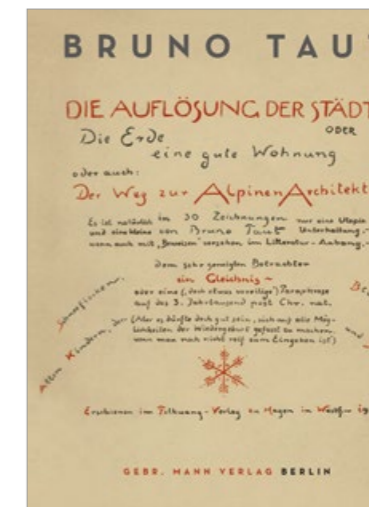 BRUNO TAU
DIE AUFLÖSUNG DER STÄDT
ODER
Die Erde
eine gute Wohnung
oder auch:
Der Weg zur Alpinen Architekt
Es ist natürlich in 30 Zeichnungen nur eine Utopie
und eine kleine von Bruno Taut Unterhaltung.-
wenn auch mit „Beweisen" versehen im Litteratur-Anhang.-
dem sehr geneigten Betrachter
ein Gleichnis -
oder eine (doch etwas voreilige) Paraphrase
auf das 3. Jahrtausend post Chr. nat.
(Aber es dürfte doch gut sein, sich auf alle Mög-
lichkeiten der Wiedergeburt gefasst zu machen,
wenn man noch nicht reif zum Eingehen ist)
Allen Kindern, den
und
Erschienen im Folkwang-Verlag zu Hagen im Westfw 19
GEBR. MANN VERLAG BERLIN